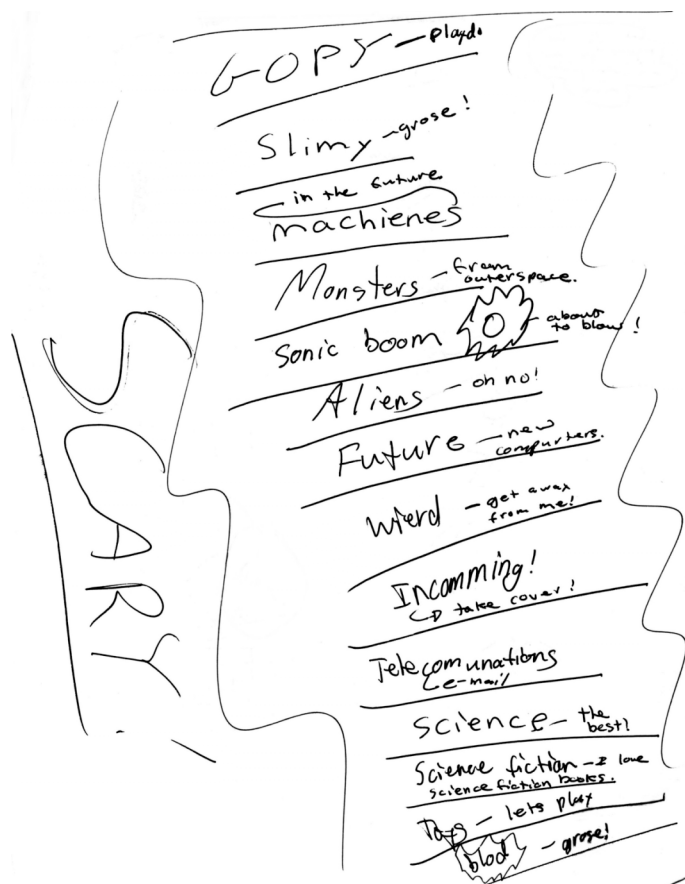 GOPY - playdo
Slimy - grose!
in the future
machienes
Monsters - from
outerspace.
Sonic boom - about
to blow!
Aliens - oh no!
Future - new
compurters.
wierd - get away
from me!
Incomming!
take cover!
Telecomunations
e-mail
science - the
best!
Science fiction - I love
science fiction books.
Toys - lets play
blod - grose!
SCARY